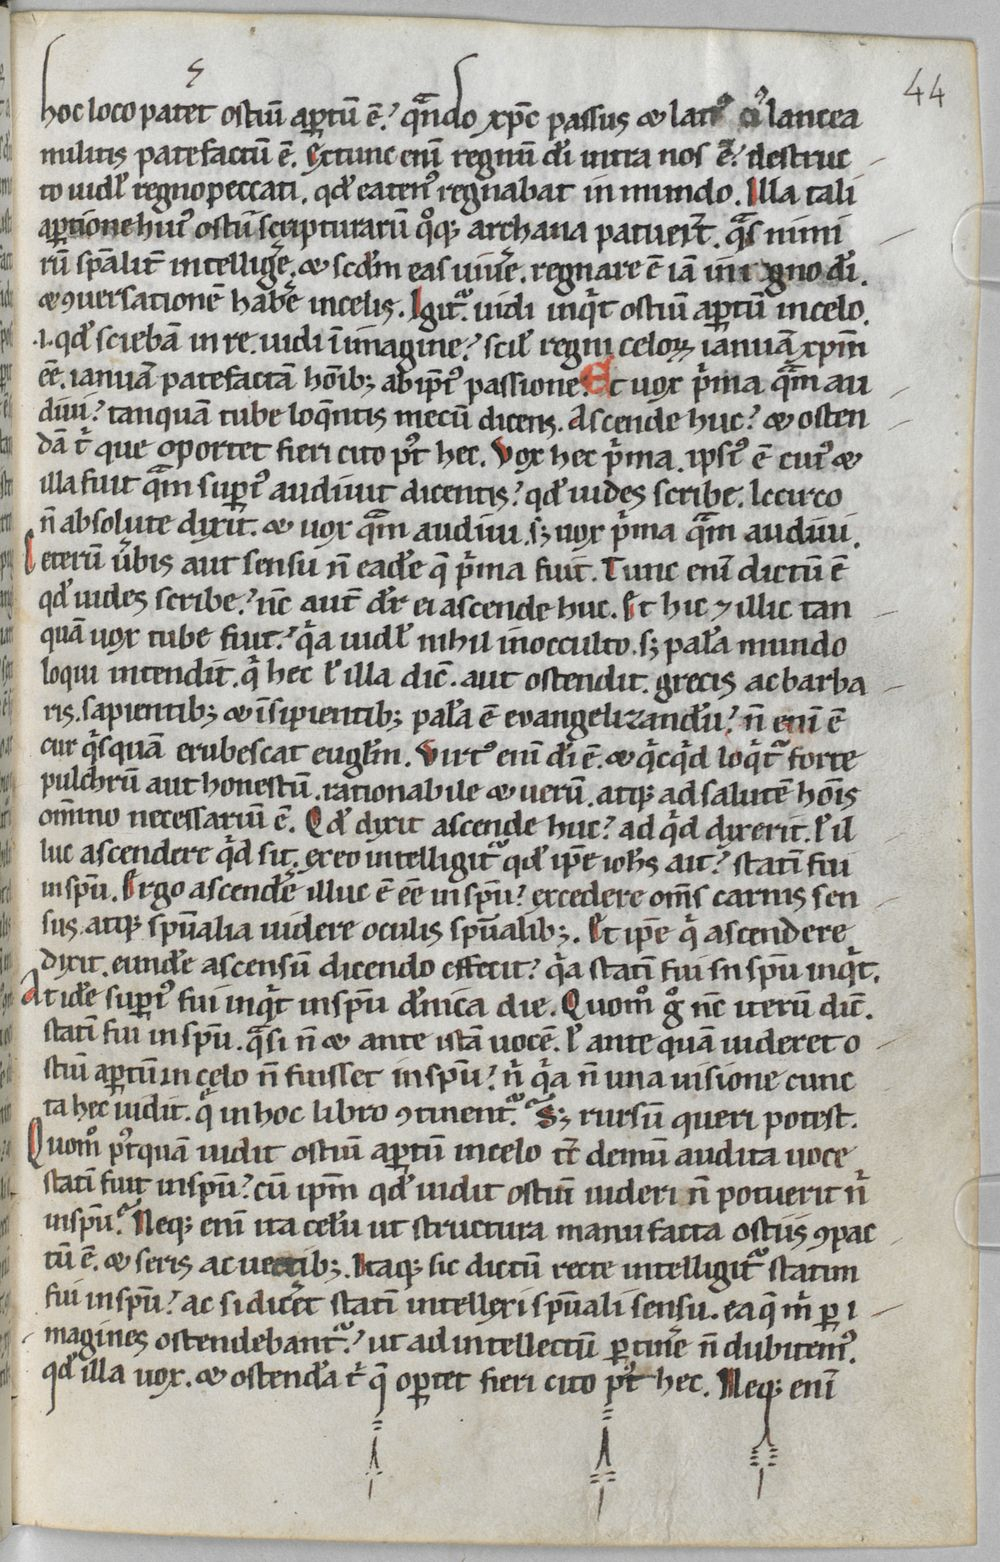 44
hoc loco patet ostiū aꝑtū ē? qͣndo xp̄c passus ⁊ latꝰ eiꝰ lancea
militis patefactū ē. Extunc enī regnū dī intra nos ē? destruc
to uidꝉ regno peccati. qđ eatenꝰ regnabat in mundo. Illa tali
aꝑtione huiꝰ ostiū scripturarū qͦqꝫ archana patuerͭ. qͣs nimi
rū sp̄alit̄ intellige͛. ⁊ scđm eas uiue͛. regnare ē iā in regno dī.
⁊ ꝯuersationē habe͛ in celis. Igit᷑. uidi inqͥt ostiū aꝑtū in celo.
.i. qđ sciebā in re. uidi ī imagine? sciꝉ regni celoꝝ ianuā xp̄m
ēē. ianuā patefactā hoīb; ab ip̄iꝰ passione. Et uox pͥma qͣm au
diui? tanquā tube loq̄ntis mecū dicens. Ascende huc? ⁊ osten
dā tͥ que oportet fieri cito pꝰt hec. Vox hec pͥma. ipsiꝰ ē cuiꝰ ⁊
illa fuit qͣm supͥꝰ audiuit dicentis? qđ uides scribe. Iccirco
n̄ absolute dixit. ⁊ uox qͣm audiui. sꝫ uox pͥma qͣm audiui.
Ceterū u͛bis aut sensu n̄ eadē q̄ pͥma fuit. Tunc enī dictū ē
qđ uides scribe? nc̄ aut̄ dr̄ ei ascende huc. Et hic ⁊ illic tan
quā uox tube fuit? qͥa uidꝉ nihil in occulto. sꝫ palā mundo
loqui intendit. qͥ hec ꝉ illa dic̄. aut ostendit. grecis ac barba
ris. sapientib; ⁊ īsipientib; palā ē evangelizandū? n̄ enī ē
cur qͥsquā erubescat euglm̄. Virtꝰ enī dī ē. ⁊ qͥcqͥd loqͥt᷑ forte
pulchrū aut honestū. rationabile ⁊ uerū. atqꝫ ad salutē hoīs
omnino necessariū ē. Qđ dixit ascende huc? ad qͥd dixerit. ꝉ il
luc ascendere qͥd sit. ex eo intelligit᷑ qđ ip̄e ioh̄s ait? statī fui
in sp̄u. Ergo ascende͛ illuc ē ēē in sp̄u? excedere om̄s carnis sen
sus. atqꝫ sp̄ualia uidere oculis sp̄ualib;. Et ip̄e qͥ ascendere
dixit. eundē ascensū dicendo effecit? qͥa statī fui in sp̄u inqͥt.
At idē supͥꝰ fui inqͥt in sp̄u dn̄ica die. Quomͦ gͦ nc̄ iterū dic̄.
statī fui in sp̄u. qͣsi n̄ ⁊ ante istā uocē. ꝉ ante quā uideret o
stiū aꝑtū in celo n̄ fuisset in sp̄u? nͥ qͥa n̄ una uisione cunc
ta hec uidit. qͥ in hoc libro ꝯtinent᷑. Sꝫ rursū queri potest.
Quomͦ pꝰtquā uidit ostiū aꝑtū in celo tc̄ demū audita uoce
statī fuit in sp̄u? cū ip̄m qđ uidit ostiū uideri n̄ potuerit nͥ
in sp̄u? Neqꝫ enī ita celū ut structura manu facta ostiis ꝯpac
tū ē. ⁊ seris ac uectib;. Itaqꝫ sic dictū recte intelligit᷑ statim
fui in sp̄u? ac si dice͛t statī intellexi sp̄uali sensu. ea q̄ mͥ ꝑ i
magines ostendebant᷑? ut ad intellectū ꝑtine͛ n̄ dubitemꝰ.
qđ illa uox. ⁊ ostendā tͥ q̄ oꝑtet fieri cito pꝰt hec. Neqꝫ enī